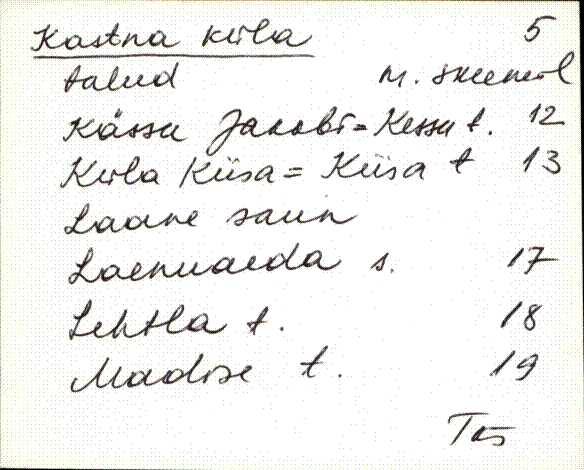 Kastna küla 5
talud M. skeemil
Kässu Jakobi = Kessu t. 12
Küla Kiisa = Kiisa t 13
Laane saun
Laenuaeda s. 17
Lehtla t. 18
Madise t. 19
Tõs